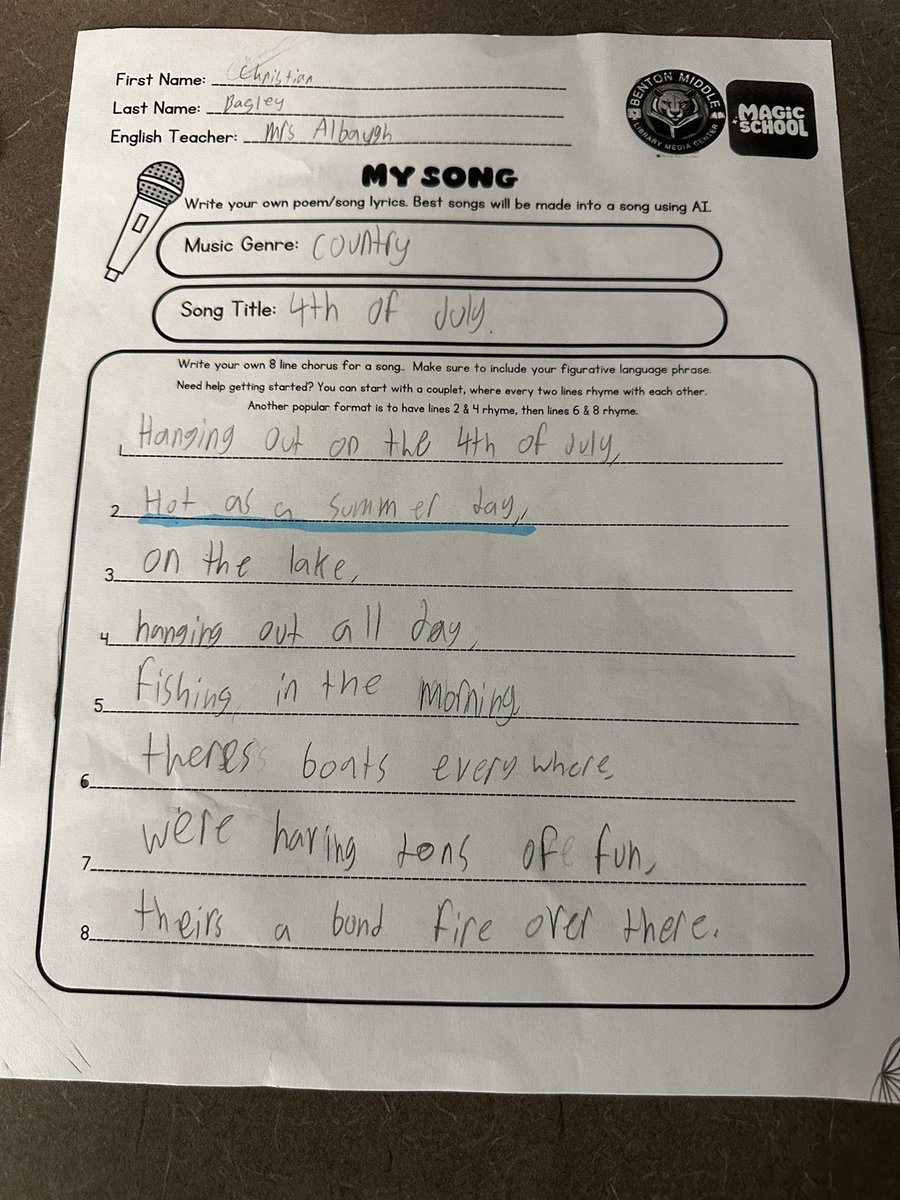 First Name: Christian
Last Name: Bagley
English Teacher: Mrs Albaugh
BENTON MIDDLE
LIBRARY MEDIA CENTER
MAGIC
SCHOOL
MY SONG
Write your own poem/song lyrics. Best songs will be made into a song using AI.
Music Genre: country
Song Title: 4th of July.
Write your own 8 line chorus for a song.. Make sure to include your figurative language phrase.
Need help getting started? You can start with a couplet, where every two lines rhyme with each other.
Another popular format is to have lines 2 & 4 rhyme, then lines 6 & 8 rhyme.
1 Hanging out on the 4th of July,
2 Hot as a summer day,
3 on the lake,
4 hanging out all day,
5 Fishing in the morning
6 theres boats every where,
7 we're having tons of fun,
8 theirs a bond fire over there.